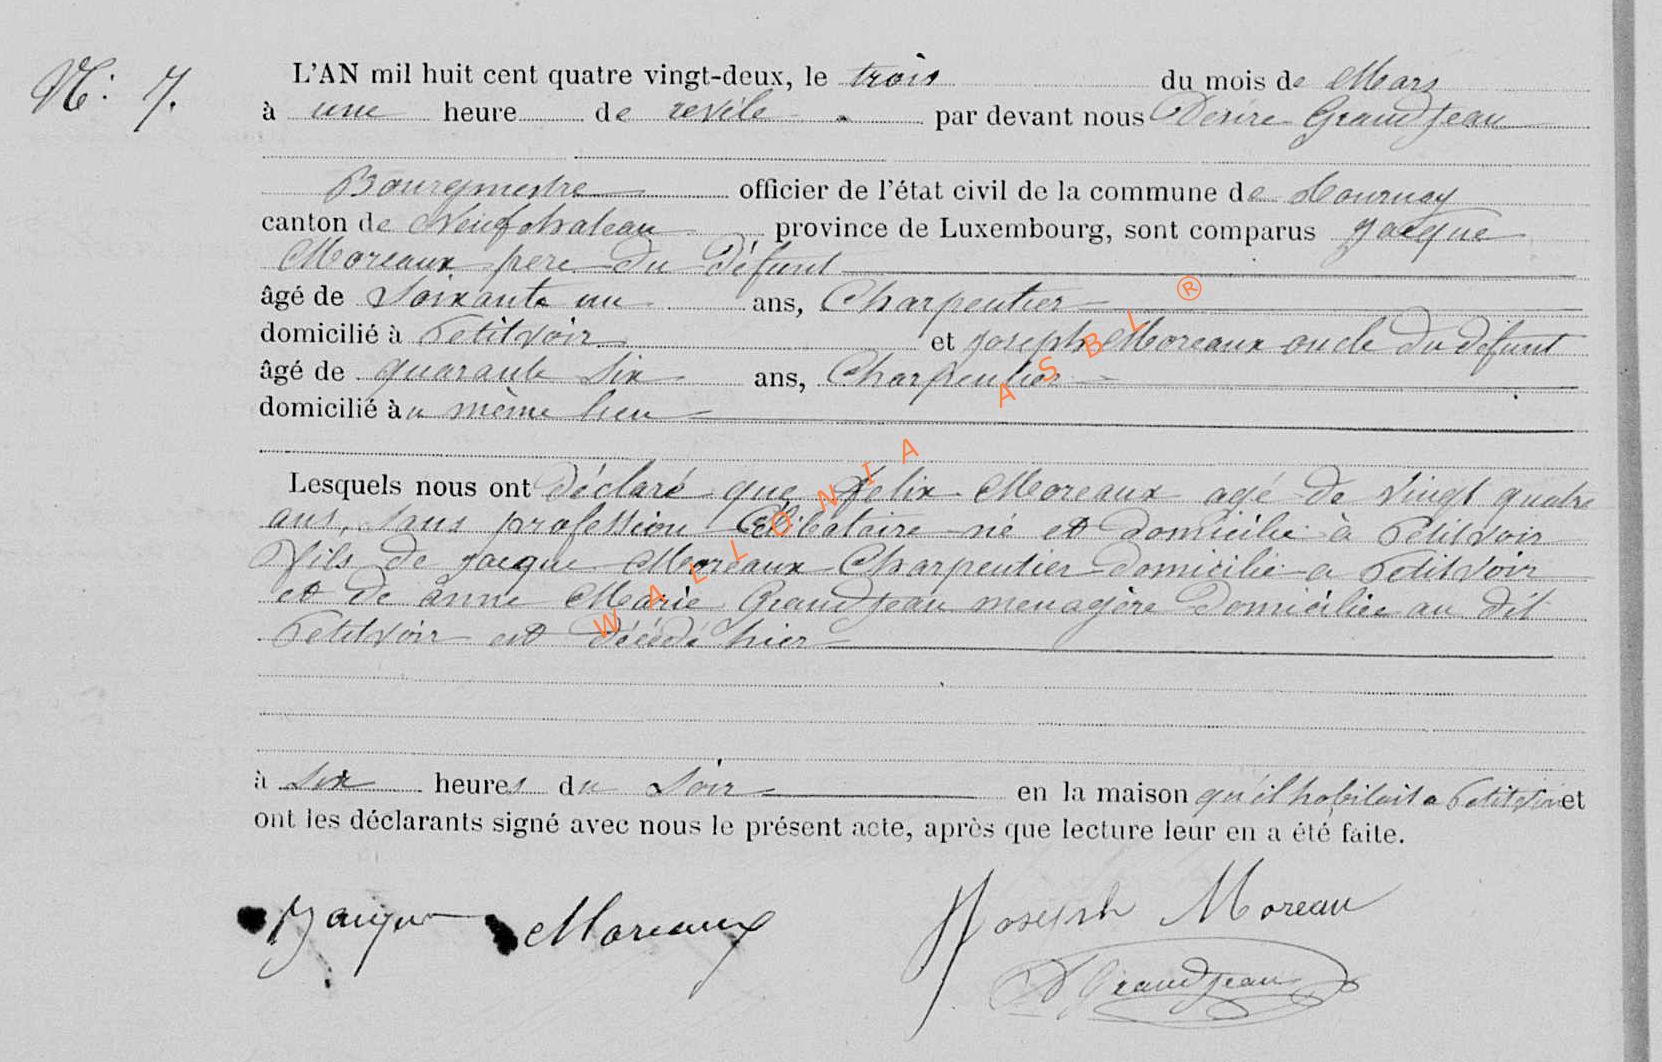 N: 7.
L'AN mil huit cent quatre vingt-deux, le trois du mois de Mars
à une heure de revélé par devant nous Désiré Grandjean
Bourgmestre officier de l'état civil de la commune de Tournay
canton de Neufchateau province de Luxembourg, sont comparus Jacque
Moreaux père du défunt
âgé de Soixante un ans, Charpentier
domicilié à Petitvoir et joseph Moreaux oncle du défunt
âgé de quarante six ans, Charpentier
domicilié à u même lieu
Lesquels nous ont déclaré que Felix Moreaux agé de vingt quatre
ans, sans profession Célibataire né et domicilié à Petitvoir
fils de jacque Moreaux Charpentier domicilié a Petitvoir
et de anne Marie Grandjean menagère Domiciliée au dit
Petitvoir est décédé hier
à six heures du Soir en la maison qu'il habitait a Petitvoir et
ont les déclarants signé avec nous le présent acte, après que lecture leur en a été faite.
Jacque Moreaux Joseph Moreau
D Grandjean
WALLONIA ASBL ®